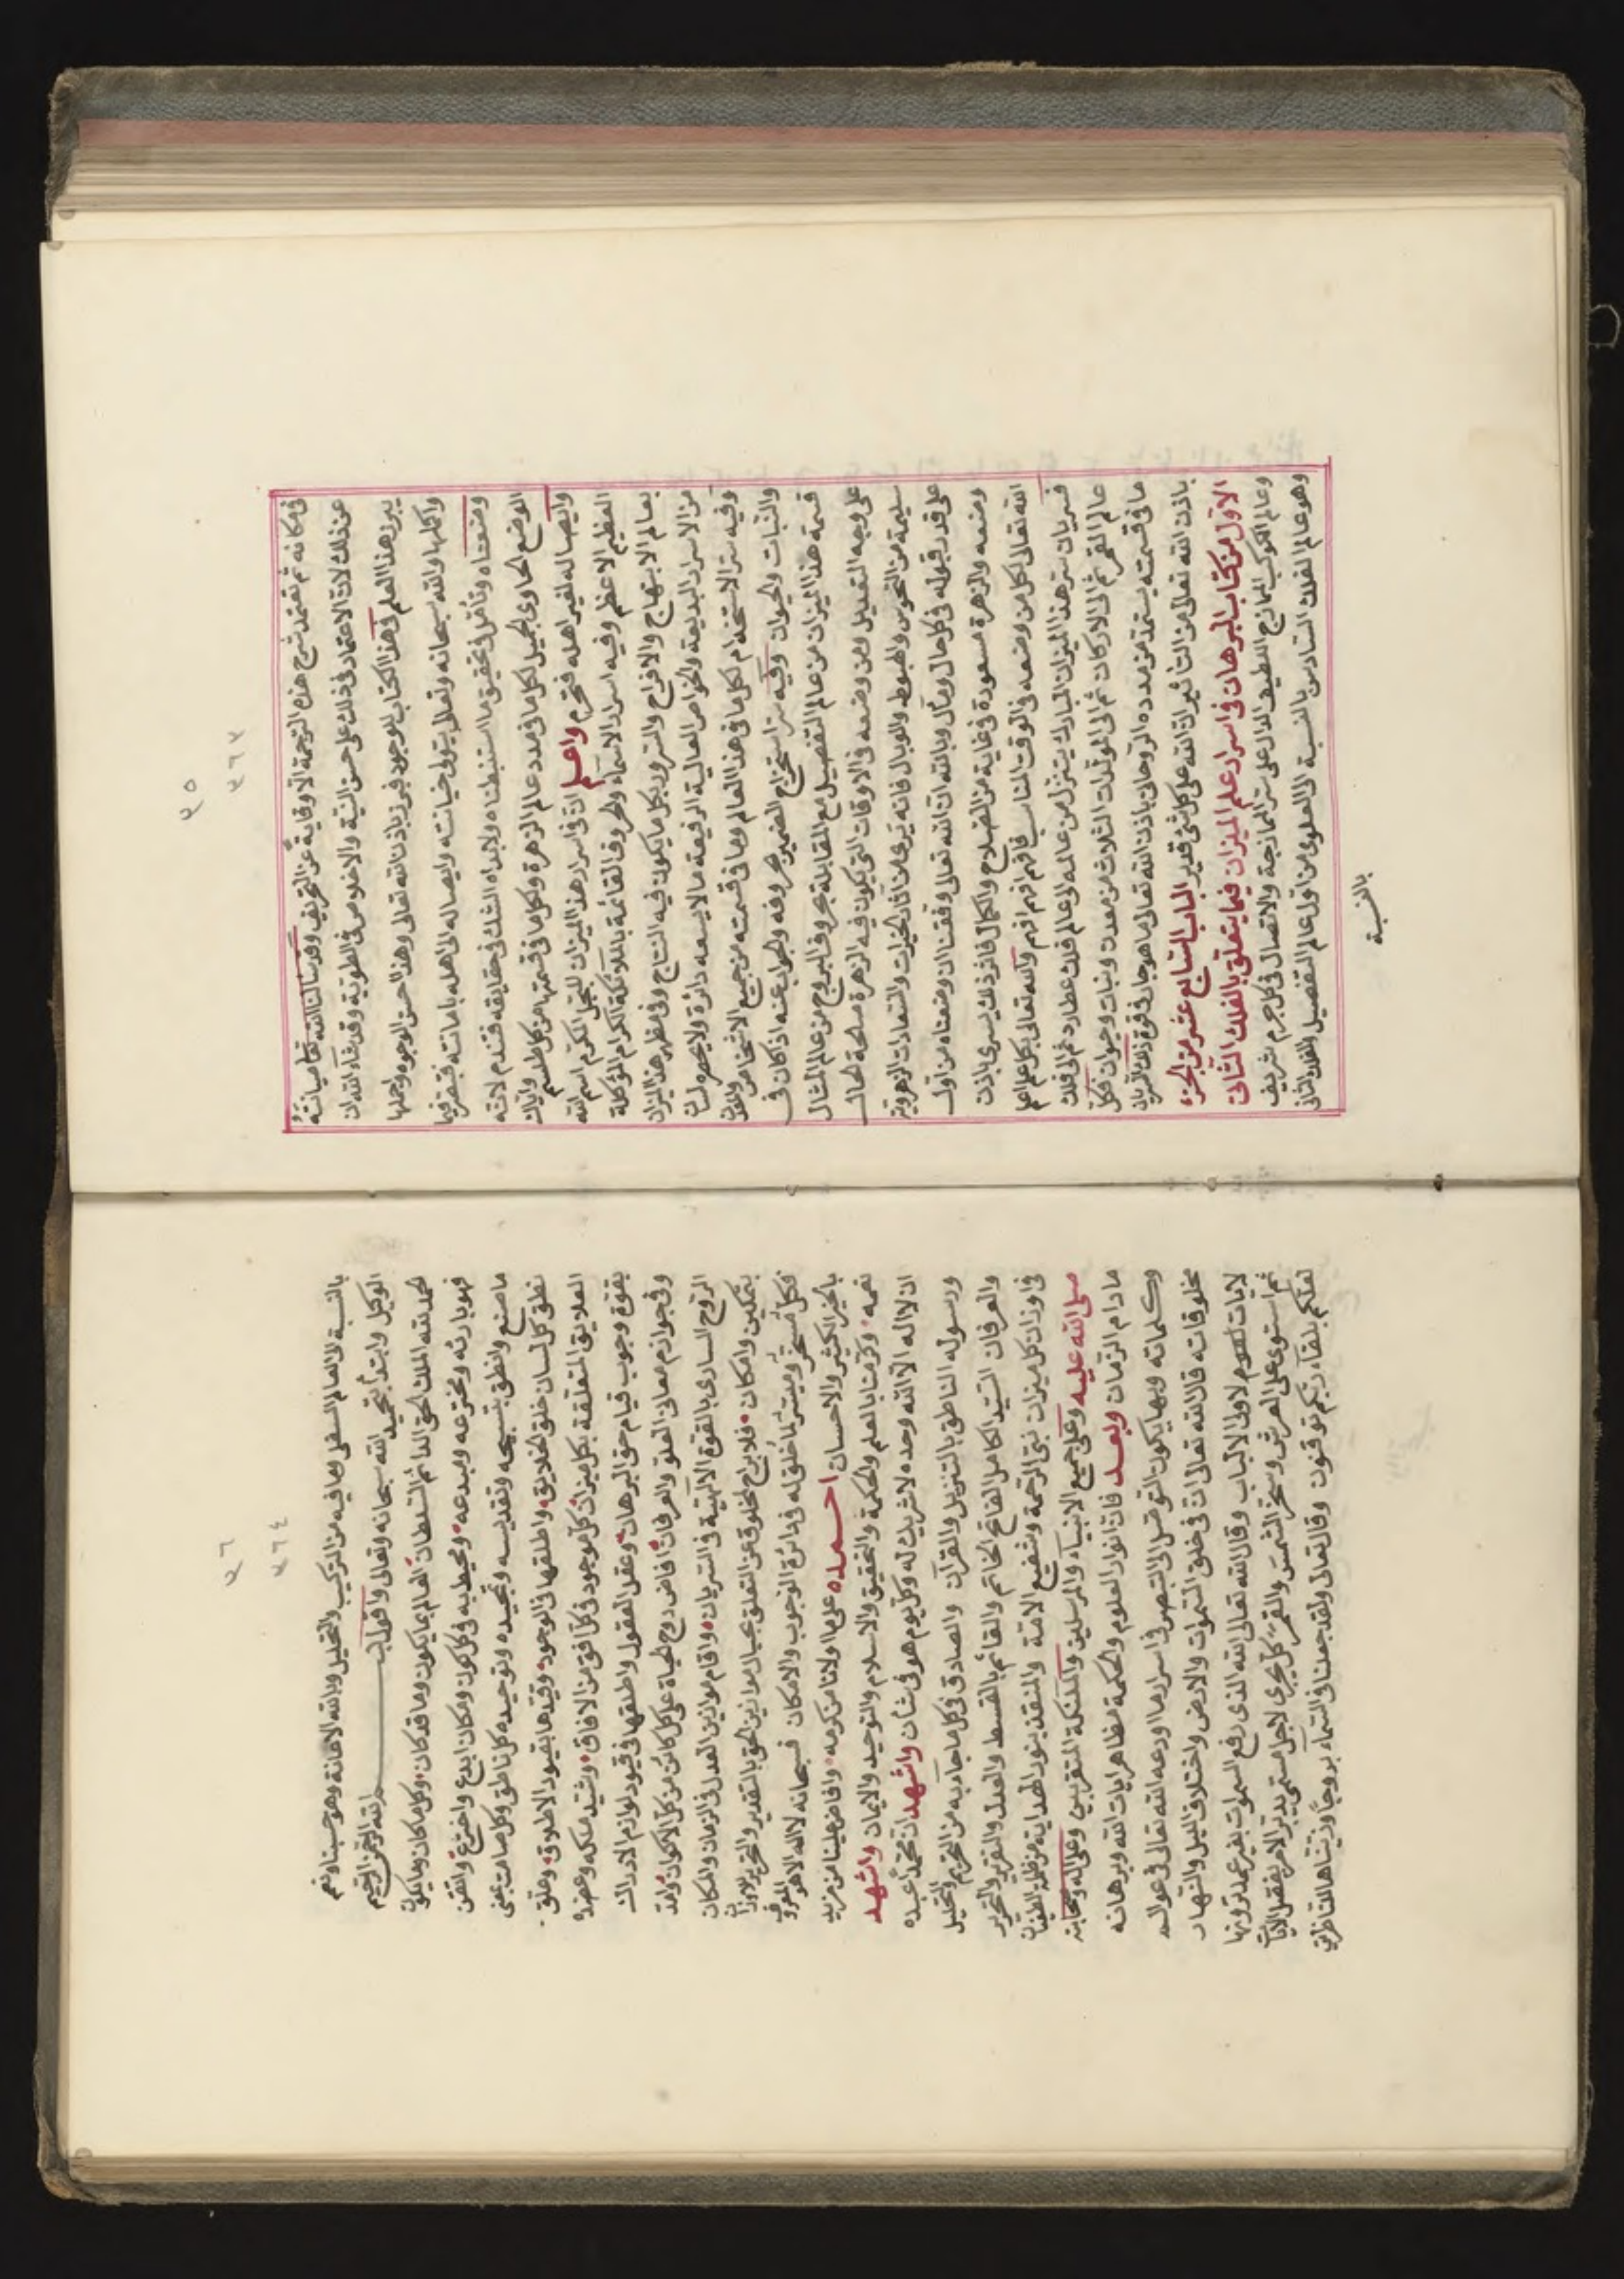 ٣٥
٣٦٣
في مكانه ثم نعتمد شرح هذه الترجمة الاوفاية عن التحريف وقد سالنا الله تعا صيانته
عن ذلك لان الاعتماد في ذلك على حسن النية والاخلاص في الطوية وقد شاء الله ان
يبرز هذا العلم في هذا الكتاب للوجود فبرز باذن الله تعالى وهذا احسن الوجوه واجملها
واكملها والله سبحانه وتعالى يتولى خيانته وايصاله الى اهله بامانته فتبصر فيما
وضعناه وتأمل في تحقيق ما استنبطناه ولا بداه الشك في حقايقه فتندم لانه
الوضع الحاوي الجميل لكل ما في مدد عالم الزهرة وكل ما في قسمتها من كل طلسم واياك
وايصاله لغير اهله فتحرم واعلم ان في اسرار هذا الميزان المبجل المكرم اسم الله
العظيم الاعظم وفيه اسرار الاسماء والحروف القائمة بالملائكة الكرام المؤكلة
بعالم الابتهاج والافراح والسرور بكل ما يكون فيه النتاج وفي مظهر هذا الميزان
من الاسرار البديعة والخواص العالية الرفيعة ما لا يسعه دائرة ولا يحصره لسان
وفيه سر الاستخدام لكل ما في هذا العالم وما في قسمته من جميع الاشخاص والمعدن
والنبات والحيوان وفيه سر استخراج الضمير بحروفه والجواب عنه اذا كان في
قسمة هذا الميزان من عالم التفصيل مع المقابلة بحروف البروج من عالم المثال
على وجه التعديل ومن وضعه في الاوقات التي يكون فيه الزهرة صالحة الحال
سليمة من النحوس والهبوط والوبال فانه يرى من اثار الخيرات والسعادات الزهروية
على قدر قبوله في كل حال ومآل وبالله ان الله تعالى وفقنا ان وضعناه من اول
وضعه والزهرة مسعودة في غاية من الصلاح والكمال فاثر ذلك يسرى باذن
الله تعالى لكل من وضعه في الوقت المناسب فافهم افهم افهم والله تعالى بكل علم اعلم
فسريان سر هذا الميزان المبارك يتنزل من عالمه الى عالم فلك عطارد ثم الى فلك
عالم القمر ثم الى الاركان ثم الى المولدات الثلاث من معدن ونبات وحيوان فكل
ما في قسمته يستمد من مدده الروحاني باذن الله تعالى ما هو جار في قوة ذلك السريان
باذن الله تعالى من التأثير ان الله على كل شئ قدير الباب السابع عشر من الجزء
الاول من كتاب البرهان في اسرار علم الميزان فيما يتعلق بالفلك الثاني
وعالم الكوكب المازج اللطيف الدال على سر الممازجة والاتصال في كل جرم شريف
وهو عالم الفلك السادس بالنسبة الى العلوي من اول عالم التفصيل والفلك الثاني
بالنسبة
٣٦
٣٦٤
بالنسبة الى العالم السفلى وما فيه من التركيب والتحليل وبالله الاعانة وهو حسبنا ونعم
الوكيل وابتدأ بتحميد الله سبحانه وتعالى واقول بسم الله الرحمن الرحيم
الحمد لله الملك الحق الدائم السلطان العالم بما يكون وما قد كان وكل ما كان وما يكون
فهو بارئه ومخترعه ومبدعه ومحيط به في كل كون ومكان ابدع واخترع واتقن
ما صنع وانطق بتسبيحه وتقديسه وتمجيده وتوحيده كل ناطق وكل صامت بمعنى
نطق كل لسان خلق الخلايق واطلقها في الوجود وقيدها بقيود الاطلاق وعلق
العلايق المتعلقة بكل ميزان كل موجود في كل افق من الافاق وشيد ملكه وعضده
بقوة وجوب قيام حق البرهان وعقل العقول واطلقها في قيود لوازم الادراك
وفي جوازم معاني العلو والعرفان افاض روح الحياة على كل كائن من كل الاكوان وامد
الروح السارى بالقوة الالهية في السريان واقام موازين العدل في الزمان والمكان
بتمكين وامكان فلا براح لمخلوق عن التعلق بحبال موازين الحق بالتقدير والتحرير للاوزان
فكل مسخر وميسر لما خلق له في دائرة الوجوب والامكان فسبحانه لا اله الا هو المعروف
بالخير الكثير والاحسان احمده على ما اولانا من كرمه وافاض علينا من مزيد
نعمه وكرمنا بالعلم والحكمة والتحقيق والاسلام والتوحيد والايمان واشهد
ان لا اله الا الله وحده لا شريك له وكل يوم هو في شأن واشهد ان محمدا عبده
ورسوله الناطق بالتنزيل والقرآن والصادق في كل ما جاء به من التحريم والتحليل
والعرفان السيد الكامل الفاتح الخاتم والقائم بالقسط والعدل والتقرير والتحرير
في اوزان كل ميزان نبى الرحمة وشفيع الامة والمنقذ بنور الهداية من ظلمة الطغيان
صلى الله عليه وعلى جميع الانبياء والمرسلين والملئكة المتقربين وعلى اله وصحابته
ما دام الزمان وبعد فان انوار العلوم والحكمة مظاهر ايات الله وبرهانه
وكلماته وبها يكون التوصل الى التبصر في اسرار ما اودعه الله تعالى في عوالم
مخلوقاته قال الله تعالى ان في خلق السموات والارض واختلاف الليل والنهار
لايات لاولى الالباب وقال الله تعالى الله الذى رفع السموات بغير عمد ترونها
ثم استوى على العرش وسخر الشمس والقمر كل يجرى لاجل مسمى يدبر الامر يفصل الايات
لعلكم بلقاء ربكم توقنون وقال تعالى ولقد جعلنا في السماء بروجا وزيناها للناظرين